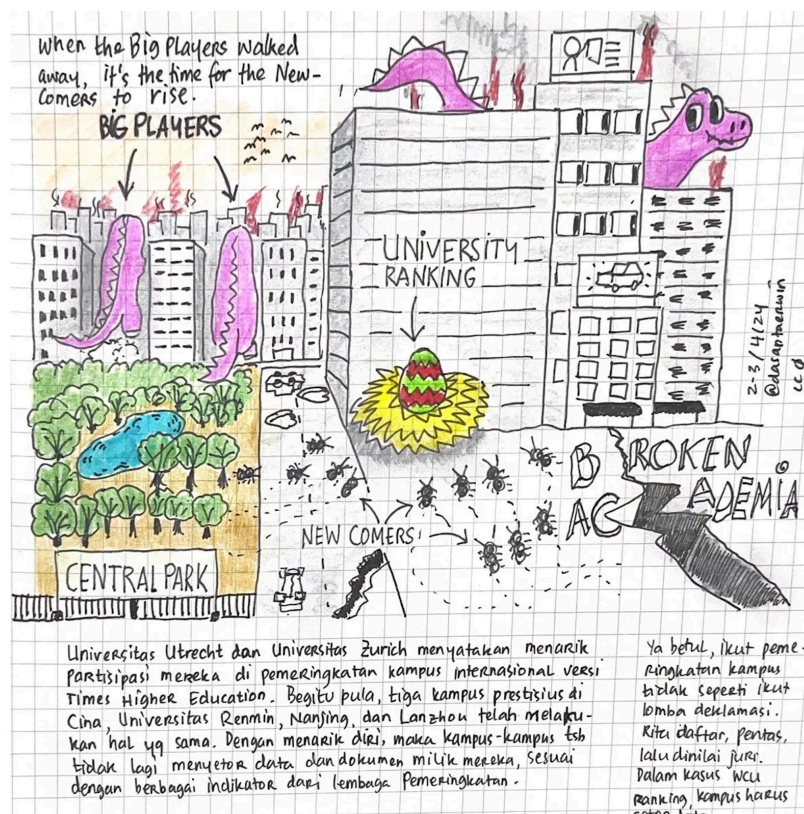 When the Big Players walked
away, it's the time for the New-
Comers to rise.
BIG PLAYERS
UNIVERSITY
RANKING
2-3/4/24
@dasaptaerwin
cc0
BROKEN
ACADEMIA
NEW COMERS
CENTRAL PARK
Universitas Utrecht dan Universitas Zurich menyatakan menarik
partisipasi mereka di pemeringkatan kampus internasional versi
Times Higher Education. Begitu pula, tiga kampus prestisius di
Cina, Universitas Renmin, Nanjing, dan Lanzhou telah melaku-
kan hal yg sama. Dengan menarik diri, maka kampus-kampus tsb
tidak lagi menyetor data dan dokumen milik mereka, sesuai
dengan berbagai indikator dari lembaga Pemeringkatan.
Ya betul, ikut peme-
ringkatan kampus
tidak seperti ikut
lomba deklamasi.
Kita daftar, pentas,
lalu dinilai juri.
Dalam kasus WCU
Ranking, kampus harus